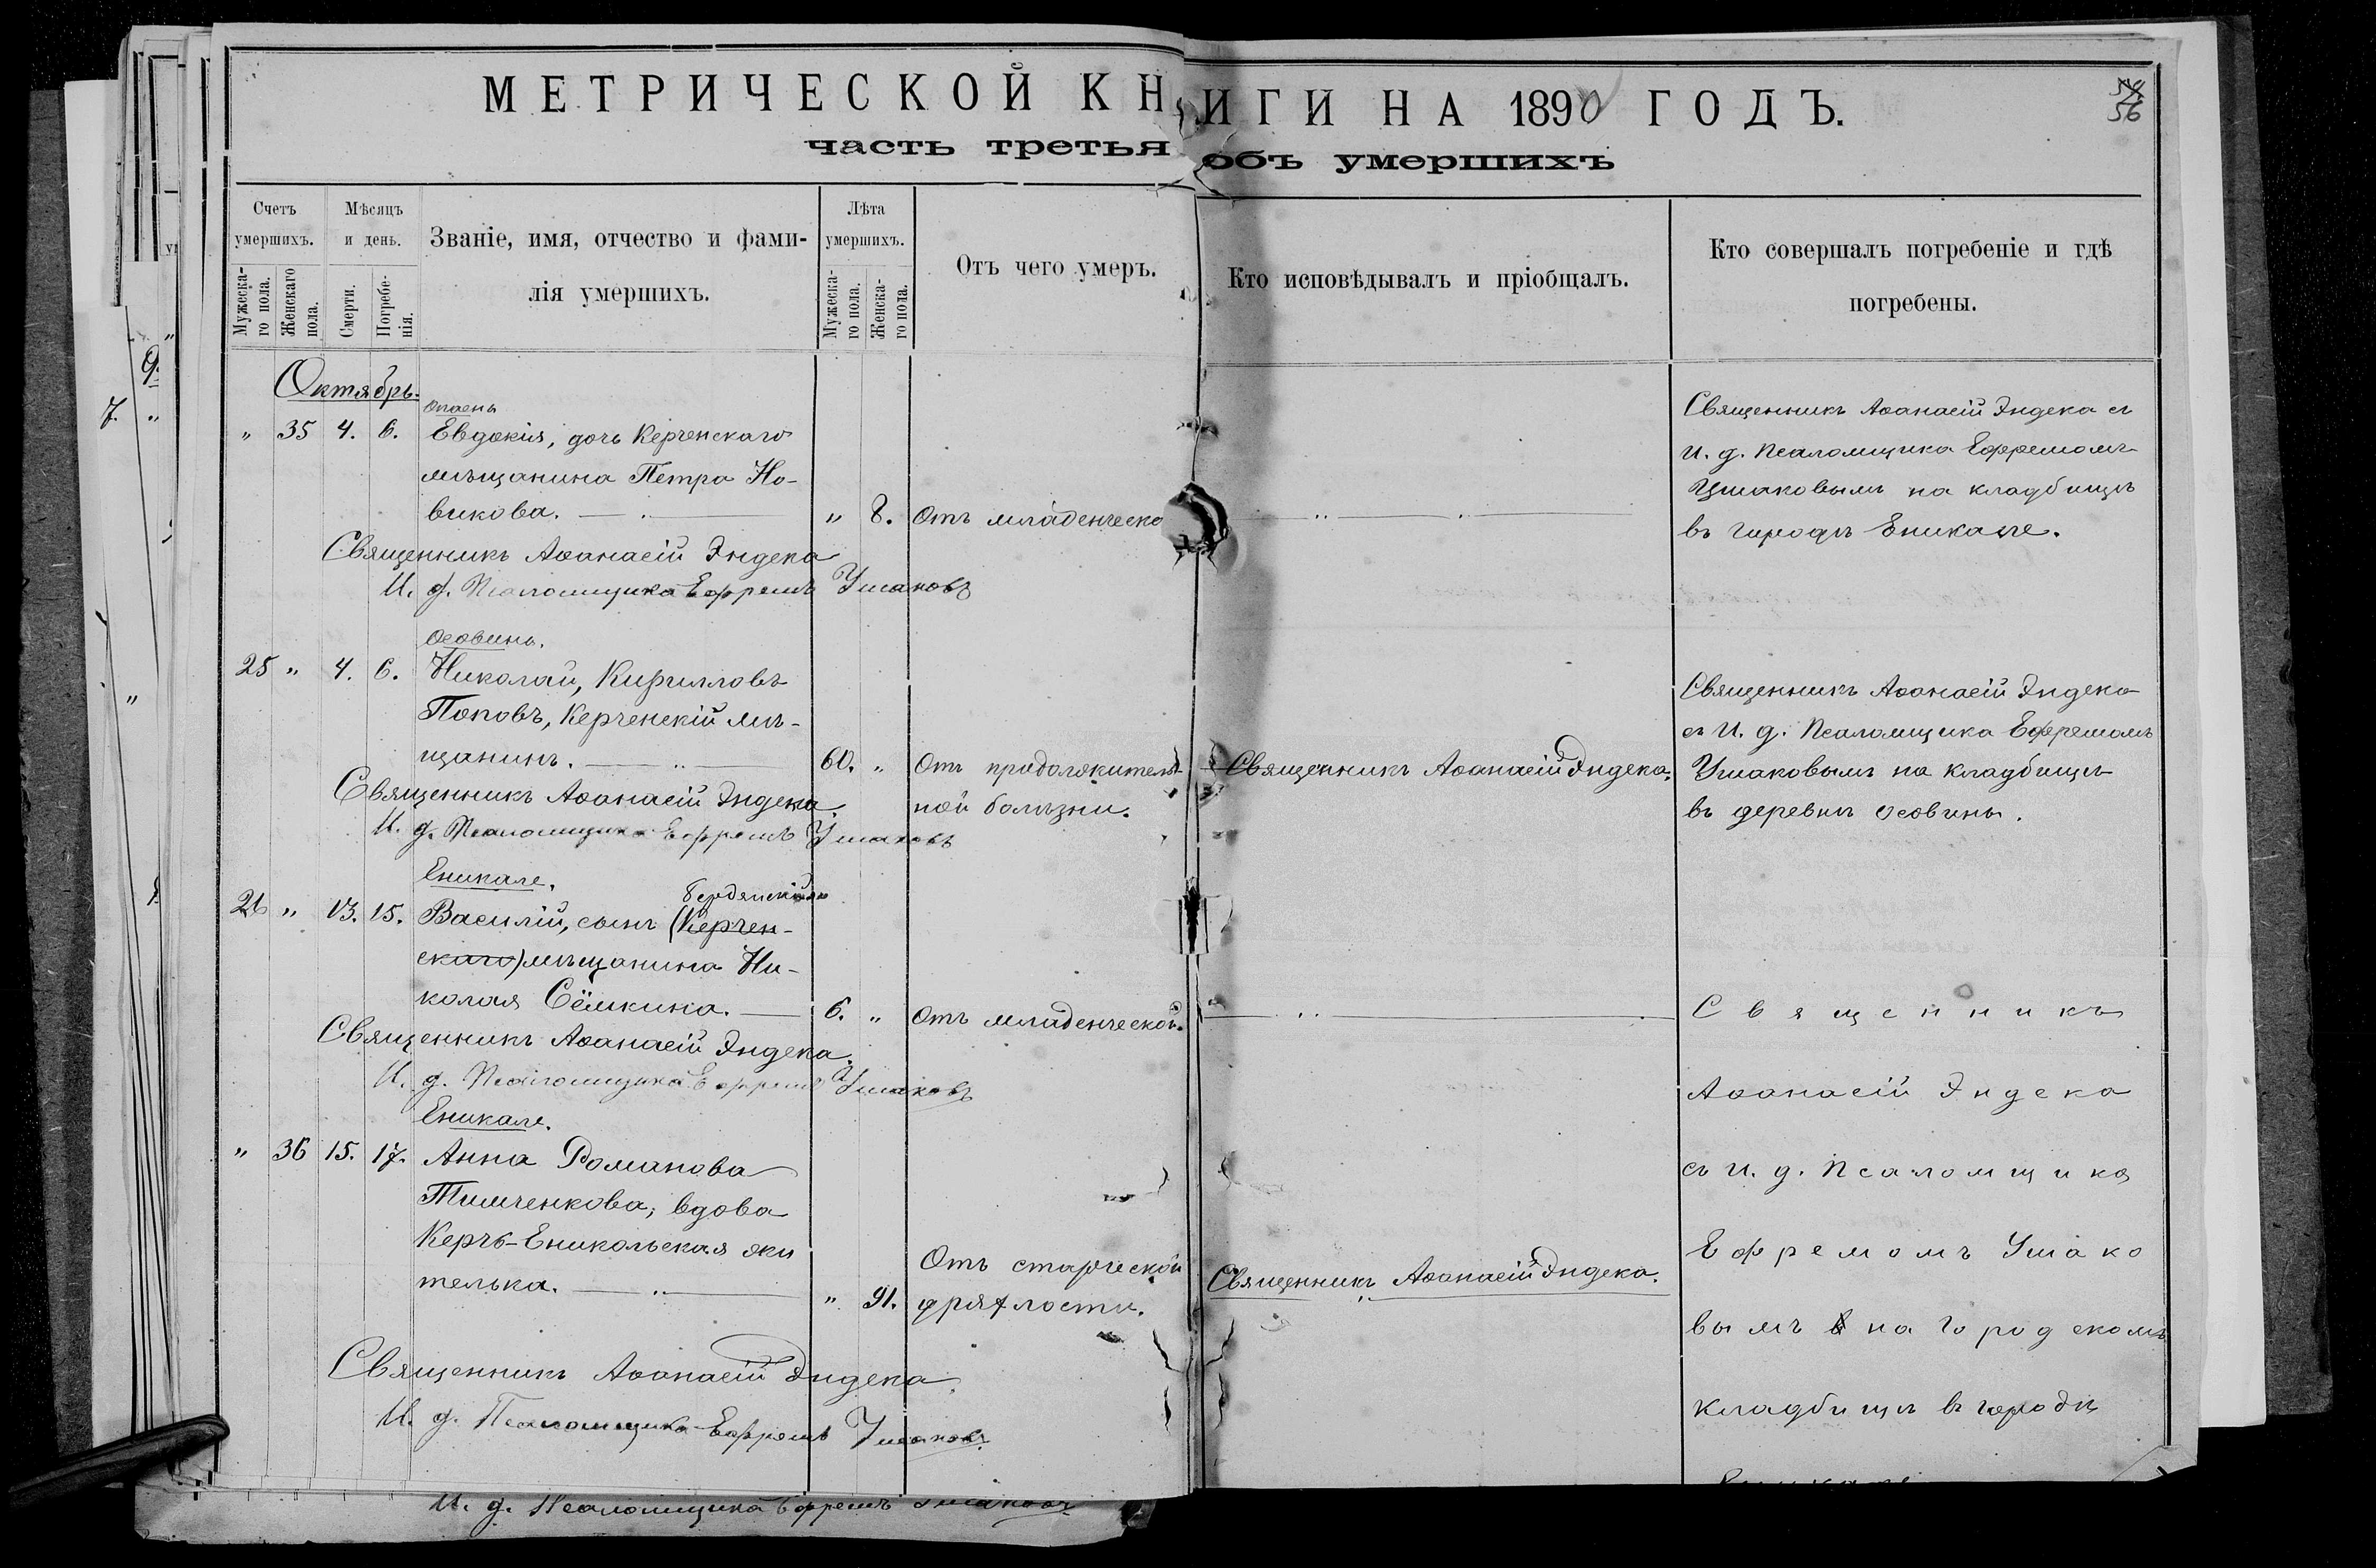 МЕТРИЧЕСКОЙ КНИГИ НА 1890 ГОДЪ.
часть третья объ умершихъ
56
Счетъ умершихъ.
Мужеска-го пола.
Женскаго пола.
Мѣсяцъ и день.
Смерти.
Погребе-нія.
Званіе, имя, отчество и фами-
лія умершихъ.
Лѣта умершихъ.
Мужеска-го пола.
Женска-го пола.
Отъ чего умеръ.
Кто исповѣдывалъ и пріобщалъ.
Кто совершалъ погребеніе и гдѣ
погребены.
Октябрь.
" 35 4. 6. Евдокія, дочь Керченскаго
мѣщанина Петра Но-
викова. " 8. Отъ младенческо
Священникъ Аѳанасій Эндека съ
И. д. Псаломщика Ефремомъ
Ушаковымъ на кладбищѣ
въ городѣ Еникале.
Священникъ Аѳанасій Эндека
И. д. Псаломщика Ефремъ Ушаковъ
Осовины.
25 " 4. 6. Николай, Кирилловъ
Поповъ, Керченскій мѣ-
щанинъ. 60. " Отъ продолжитель-
ной болѣзни.
Священникъ Аѳанасій Эндека.
Священникъ Аѳанасій Эндека
съ И. д. Псаломщика Ефремомъ
Ушаковымъ на кладбищѣ
въ деревнѣ Осовины.
Священникъ Аѳанасій Эндека.
И. д. Псаломщика Ефремъ Ушаковъ
Еникале.
26 " 13. 15. Василій, сынъ (Керчен-
скаго) мѣщанина Ни-
колая Сёмкина. 6. " Отъ младенческой.
Священникъ Аѳанасій Эндека.
И. д. Псаломщика Ефремъ Ушаковъ
Еникале.
" 36 15. 17. Анна Романова
Тимченкова, вдова
Керчь-Еникольская жи
телька. " 91. Отъ старческой
дряхлости.
Священникъ Аѳанасій Эндека.
Священникъ
Аѳанасій Эндека
съ И. д. Псаломщика
Ефремомъ Ушако
вымъ на городскомъ
кладбищѣ въ городѣ
Священникъ Аѳанасій Эндека.
И. д. Псаломщика Ефремъ Ушаковъ.
И. д. Псаломщика Ефремъ Ушаковъ